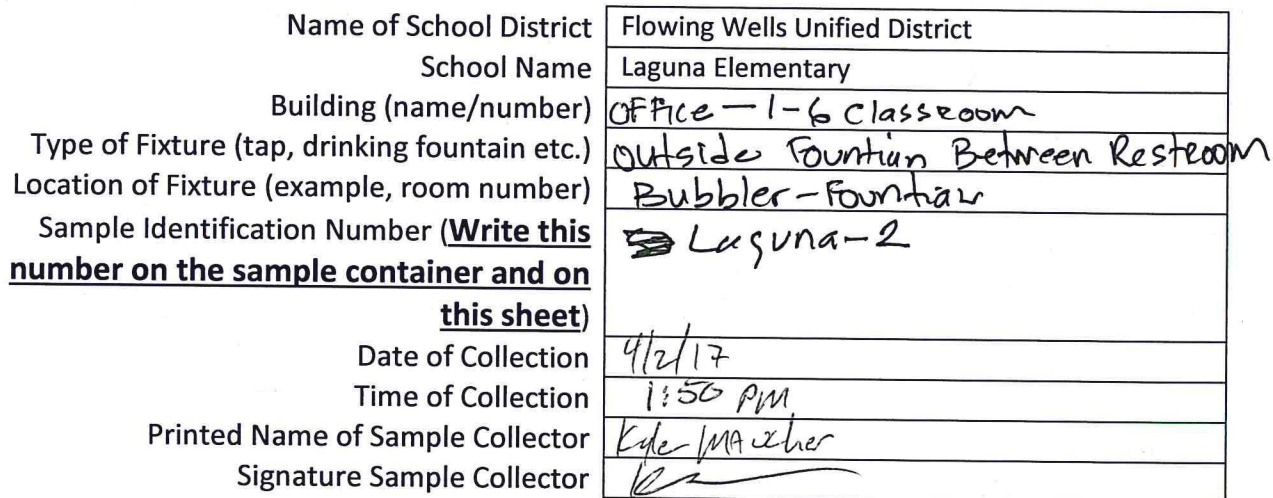 Name of School District Flowing Wells Unified District
School Name Laguna Elementary
Building (name/number) OFFice - 1-6 Classroom
Type of Fixture (tap, drinking fountain etc.) Outside Fountian Between Restroom
Location of Fixture (example, room number) Bubbler-Fountian
Sample Identification Number (Write this Laguna-2
number on the sample container and on
this sheet)
Date of Collection 4/2/17
Time of Collection 1:50 PM
Printed Name of Sample Collector Kyle
Signature Sample Collector